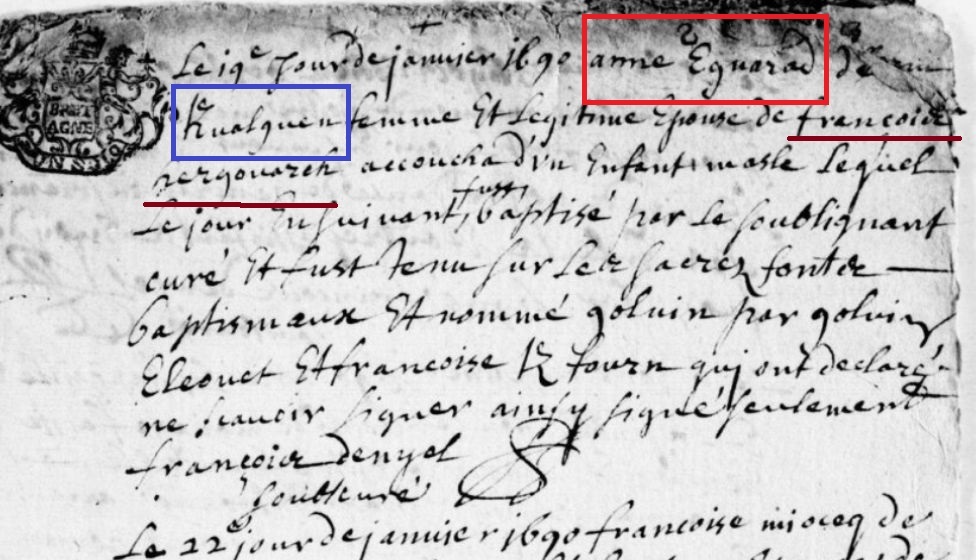 BRET
AGNE
Le 19e jour de janvier 1690 anne Eguarad de
Kualguen femme Et Legitime Epouse de françois
nergouarch accoucha d'un Enfant masle Lequel
Le jour Ensuivant fust baptisé par Le soubsignant
curé Et fust tenu sur Les sacrez fontes
baptismaux Et nommé golvin par golvin
Eleouet Et francoise K tourn qui ont declaré
ne scavoir signer ainsy signé seulement
françois denyel
soubscuré
Le 22 jour de janvier 1690 francoise mioceq de